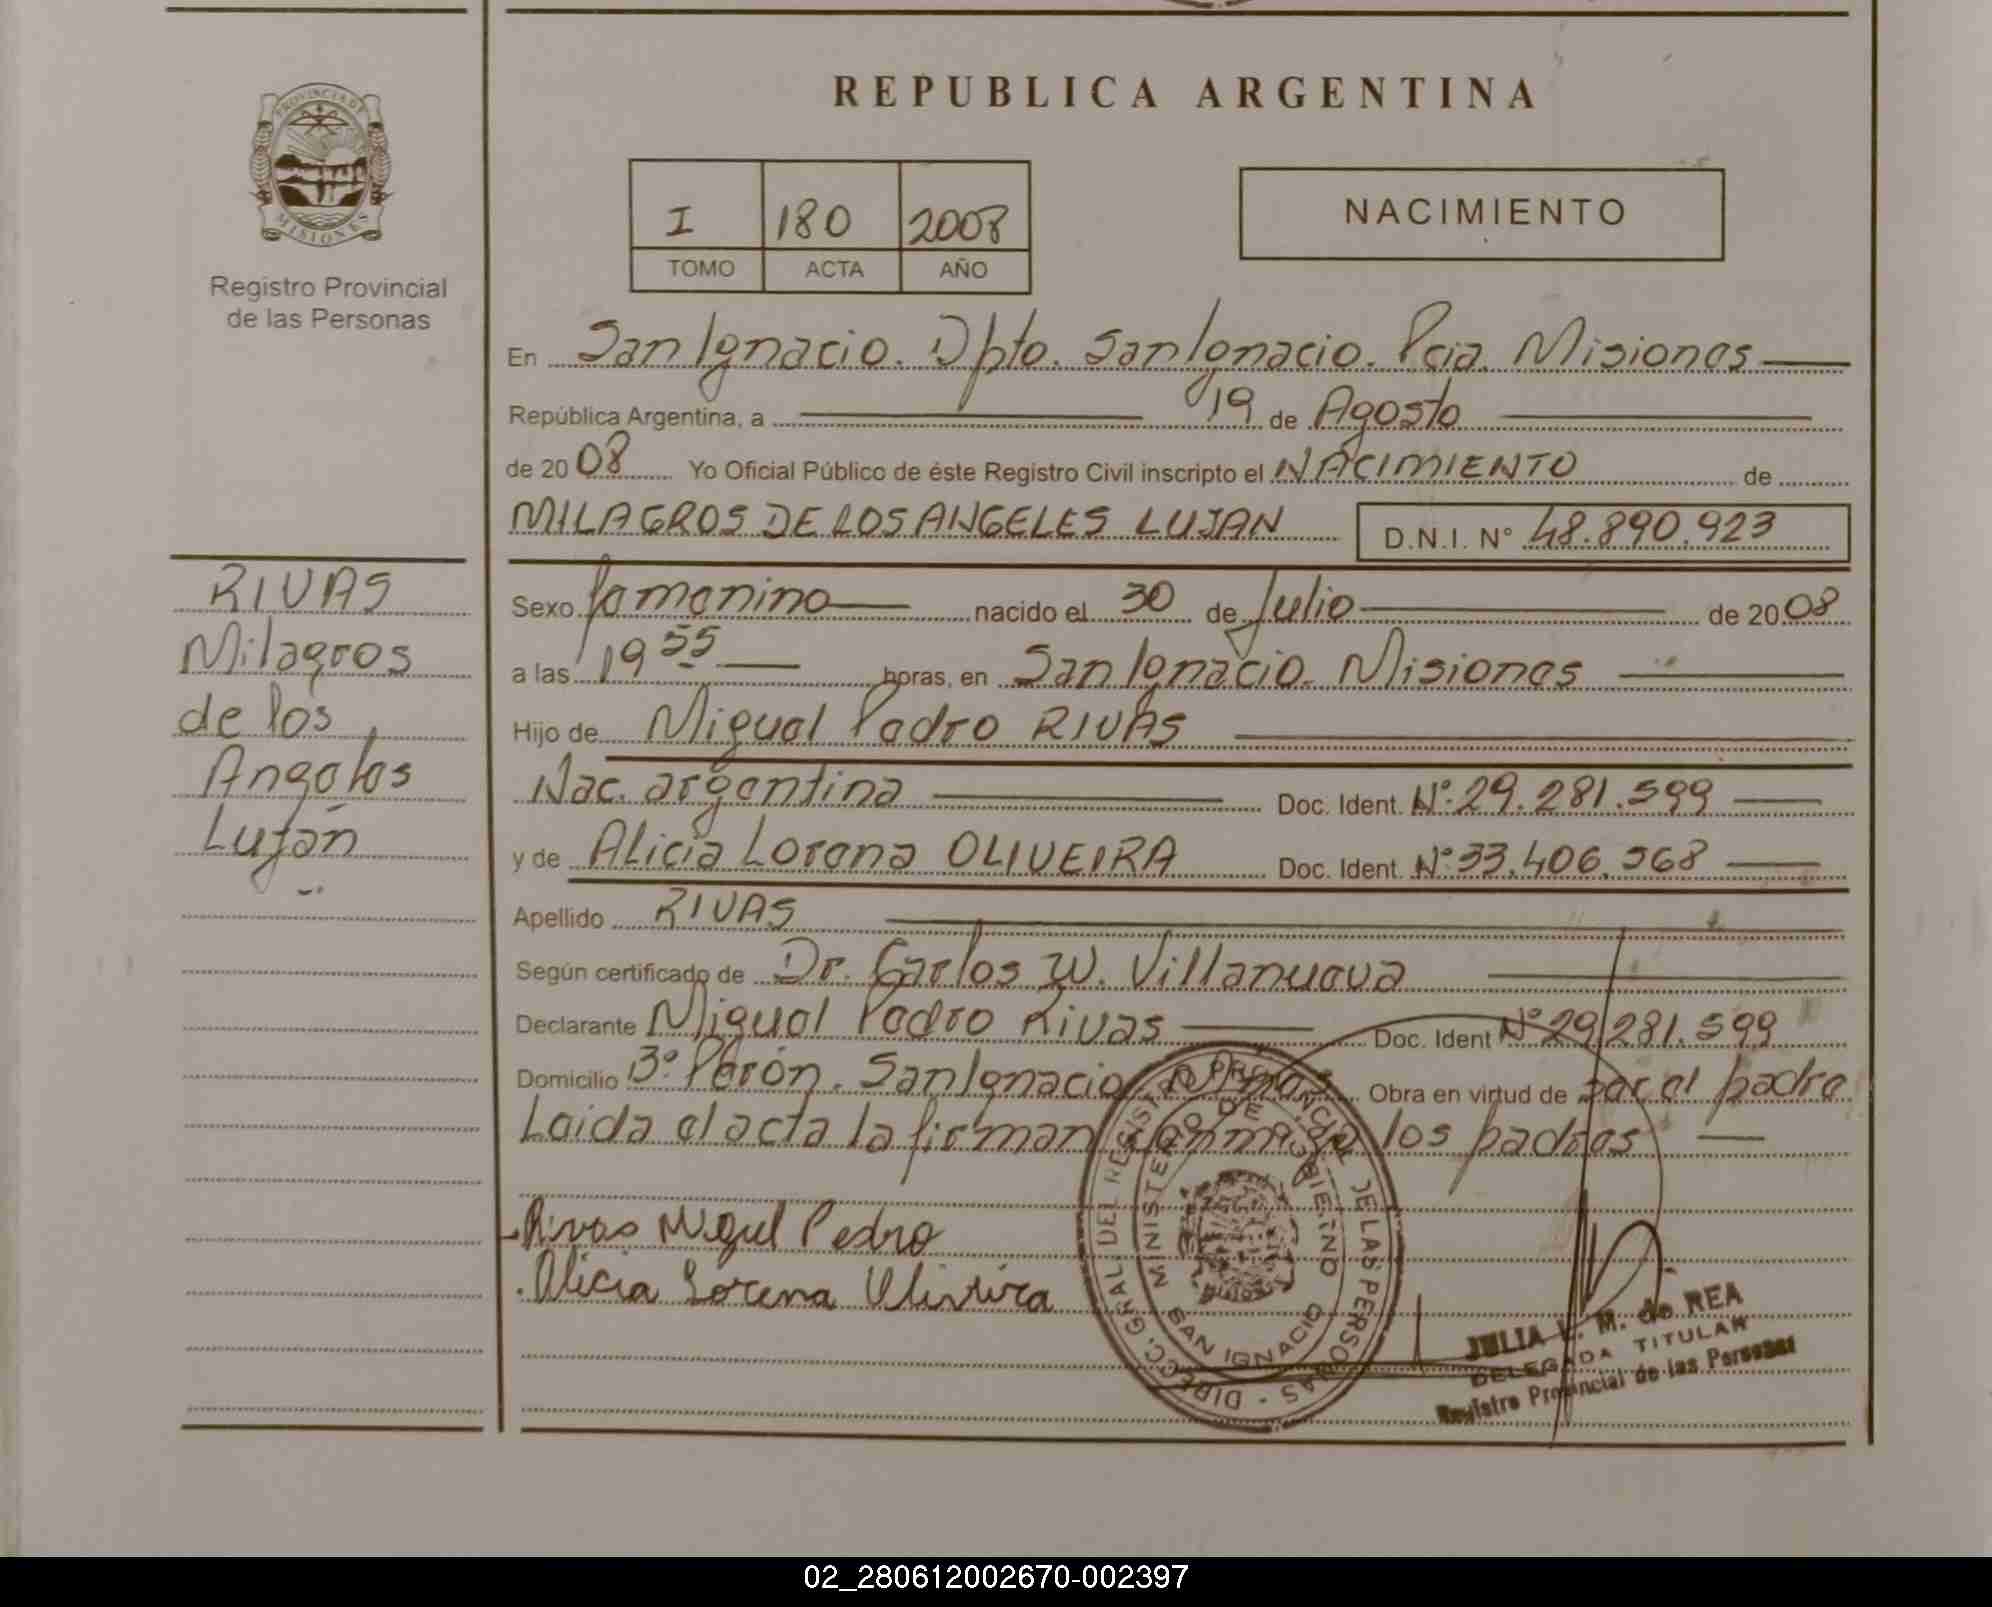 REPUBLICA ARGENTINA
PROVINCIA DE
MISIONES
Registro Provincial
de las Personas
I 180 2008
TOMO ACTA AÑO
NACIMIENTO
En San Ignacio. Dpto. San Ignacio. Pcia. Misiones
República Argentina, a 19 de Agosto
de 2008 Yo Oficial Público de éste Registro Civil inscripto el NACIMIENTO de
MILAGROS DE LOS ANGELES LUJAN D.N.I. N° 48.890.923
RIVAS
Milagros
de los
Angeles
Luján
Sexo femenino nacido el 30 de Julio de 2008
a las 19 55 horas, en San Ignacio. Misiones
Hijo de Miguel Pedro RIVAS
Nac. argentina Doc. Ident. N°: 29.281.599
y de Alicia Lorena OLIVEIRA Doc. Ident. N°: 33.406.568
Apellido RIVAS
Según certificado de Dr. Carlos W. Villanueva
Declarante Miguel Pedro Rivas Doc. Ident N° 29.281.599
Domicilio B° Perón. San Ignacio Obra en virtud de ser el padre
Leida el acta la firman conmigo los padres
Rivas Miguel Pedro
Alicia Lorena Oliveira
DIRECC. GRAL. DEL REGISTRO PROVINCIAL DE LAS PERSONAS
MINISTERIO DE GOBIERNO
SAN IGNACIO
JULIA L. M. de REA
DELEGADA TITULAR
Registro Provincial de las Personas
02_280612002670-002397